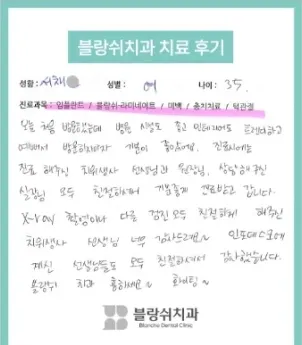 블랑쉬치과 치료 후기
성함 : 서채 성별 : 여 나이 : 35.
진료과목 : 임플란트 / 블랑쉬-라미네이트 / 미백 / 충치치료 / 턱관절
오늘 처음 방문했는데 병원 시설도 좋고 인테리어도
예뻐서 방문하자마자 기분이 좋았어요. 진료시에도
진료 해주신 치위생사 선생님과 원장님, 상담해주신
실장님 모두 친절하셔서 기분좋게 진료받고 갑니다.
X-ray 촬영이나 다른 검진 모두 친절하게 해주신
치위생사 선생님 너무 감사드려요~ 인포데스크에
계신 선생님들도 모두 친절하셔서 감사했습니다.
블랑쉬 치과 흥하세요~ 화이팅~
블랑쉬치과
Blanche Dental Clinic